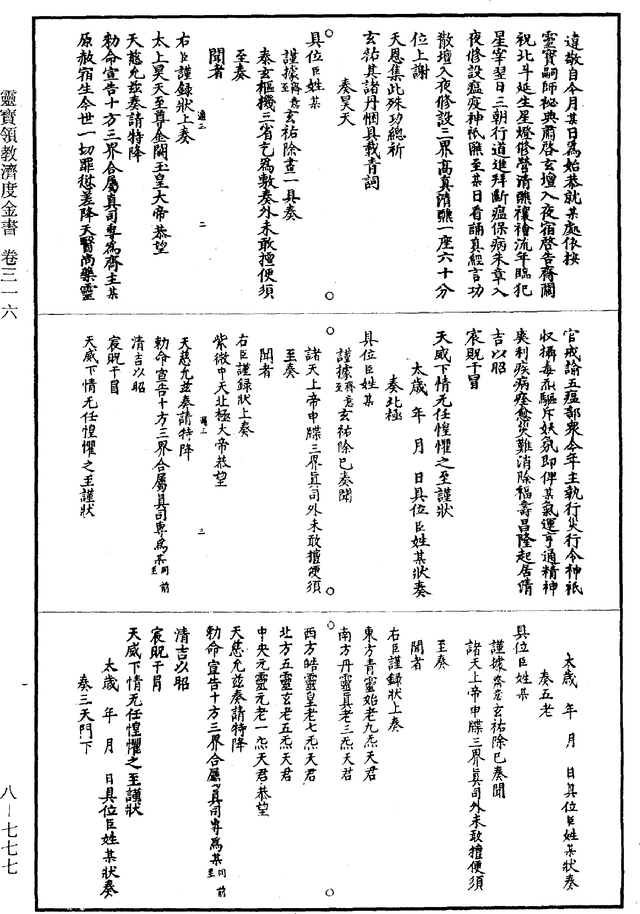 靈寶領教濟度金書 卷三一六
遠敬自今月某日為始恭就某處依按
靈寶嗣師秘典肅啓玄壇入夜宿啓告齋關
祝北斗延生星燈修營清醮禳禬流年臨犯
星宰翌日三朝行道進拜斷瘟保病朱章入
夜修設瘟疫神祇醮至某日看誦真經言功
散壇入夜修設三界高真清醮一座六十分
位上謝
天恩集此殊功總祈
玄祐其諸丹悃具載青詞
奏昊天
具位臣姓某
謹據齋意至玄祐除畫一具奏
泰玄樞機三省乞為敷奏外未敢擅便須
至奏
聞者
右臣謹錄狀上奏
太上昊天至尊金闕玉皇大帝恭望
天慈允茲奏請特降
勑命宣告十方三界合屬真司專為齋主某
原赦宿生今世一切罪愆差降天醫尚藥靈
官戒諭五瘟部衆今年主執行災行令神祇
収攝毒炁驅斥妖氛即俾某氣運亨通精神
爽利疾病痊愈災難消除福壽昌隆起居清
吉以昭
宸貺干冐
天威下情无任惶懼之至謹狀
太歲 年 月 日具位臣姓某狀奏
奏北極
具位臣姓某
謹據齋意至玄祐除已奏聞
諸天上帝申牒三界真司外未敢擅便須
至奏
聞者
右臣謹錄狀上奏
紫微中天北極大帝恭望
天慈允茲奏請特降
勑命宣告十方三界合屬真司專為某同前至
清吉以昭
宸貺干冐
天威下情无任惶懼之至謹狀
太歲 年 月 日具位臣姓某狀奏
奏五老
具位臣姓某
謹據齋意至玄祐除已奏聞
諸天上帝申牒三界真司外未敢擅便須
至奏
聞者
右臣謹錄狀上奏
東方青靈始老九炁天君
南方丹靈真老三炁天君
西方皓靈皇老七炁天君
北方五靈玄老五炁天君
中央元靈元老一炁天君恭望
天慈允茲奏請特降
勑命宣告十方三界合屬真司專為某同前至
清吉以昭
宸貺干冐
天威下情无任惶懼之至謹狀
太歲 年 月 日具位臣姓某狀奏
奏三天門下
八—七七七